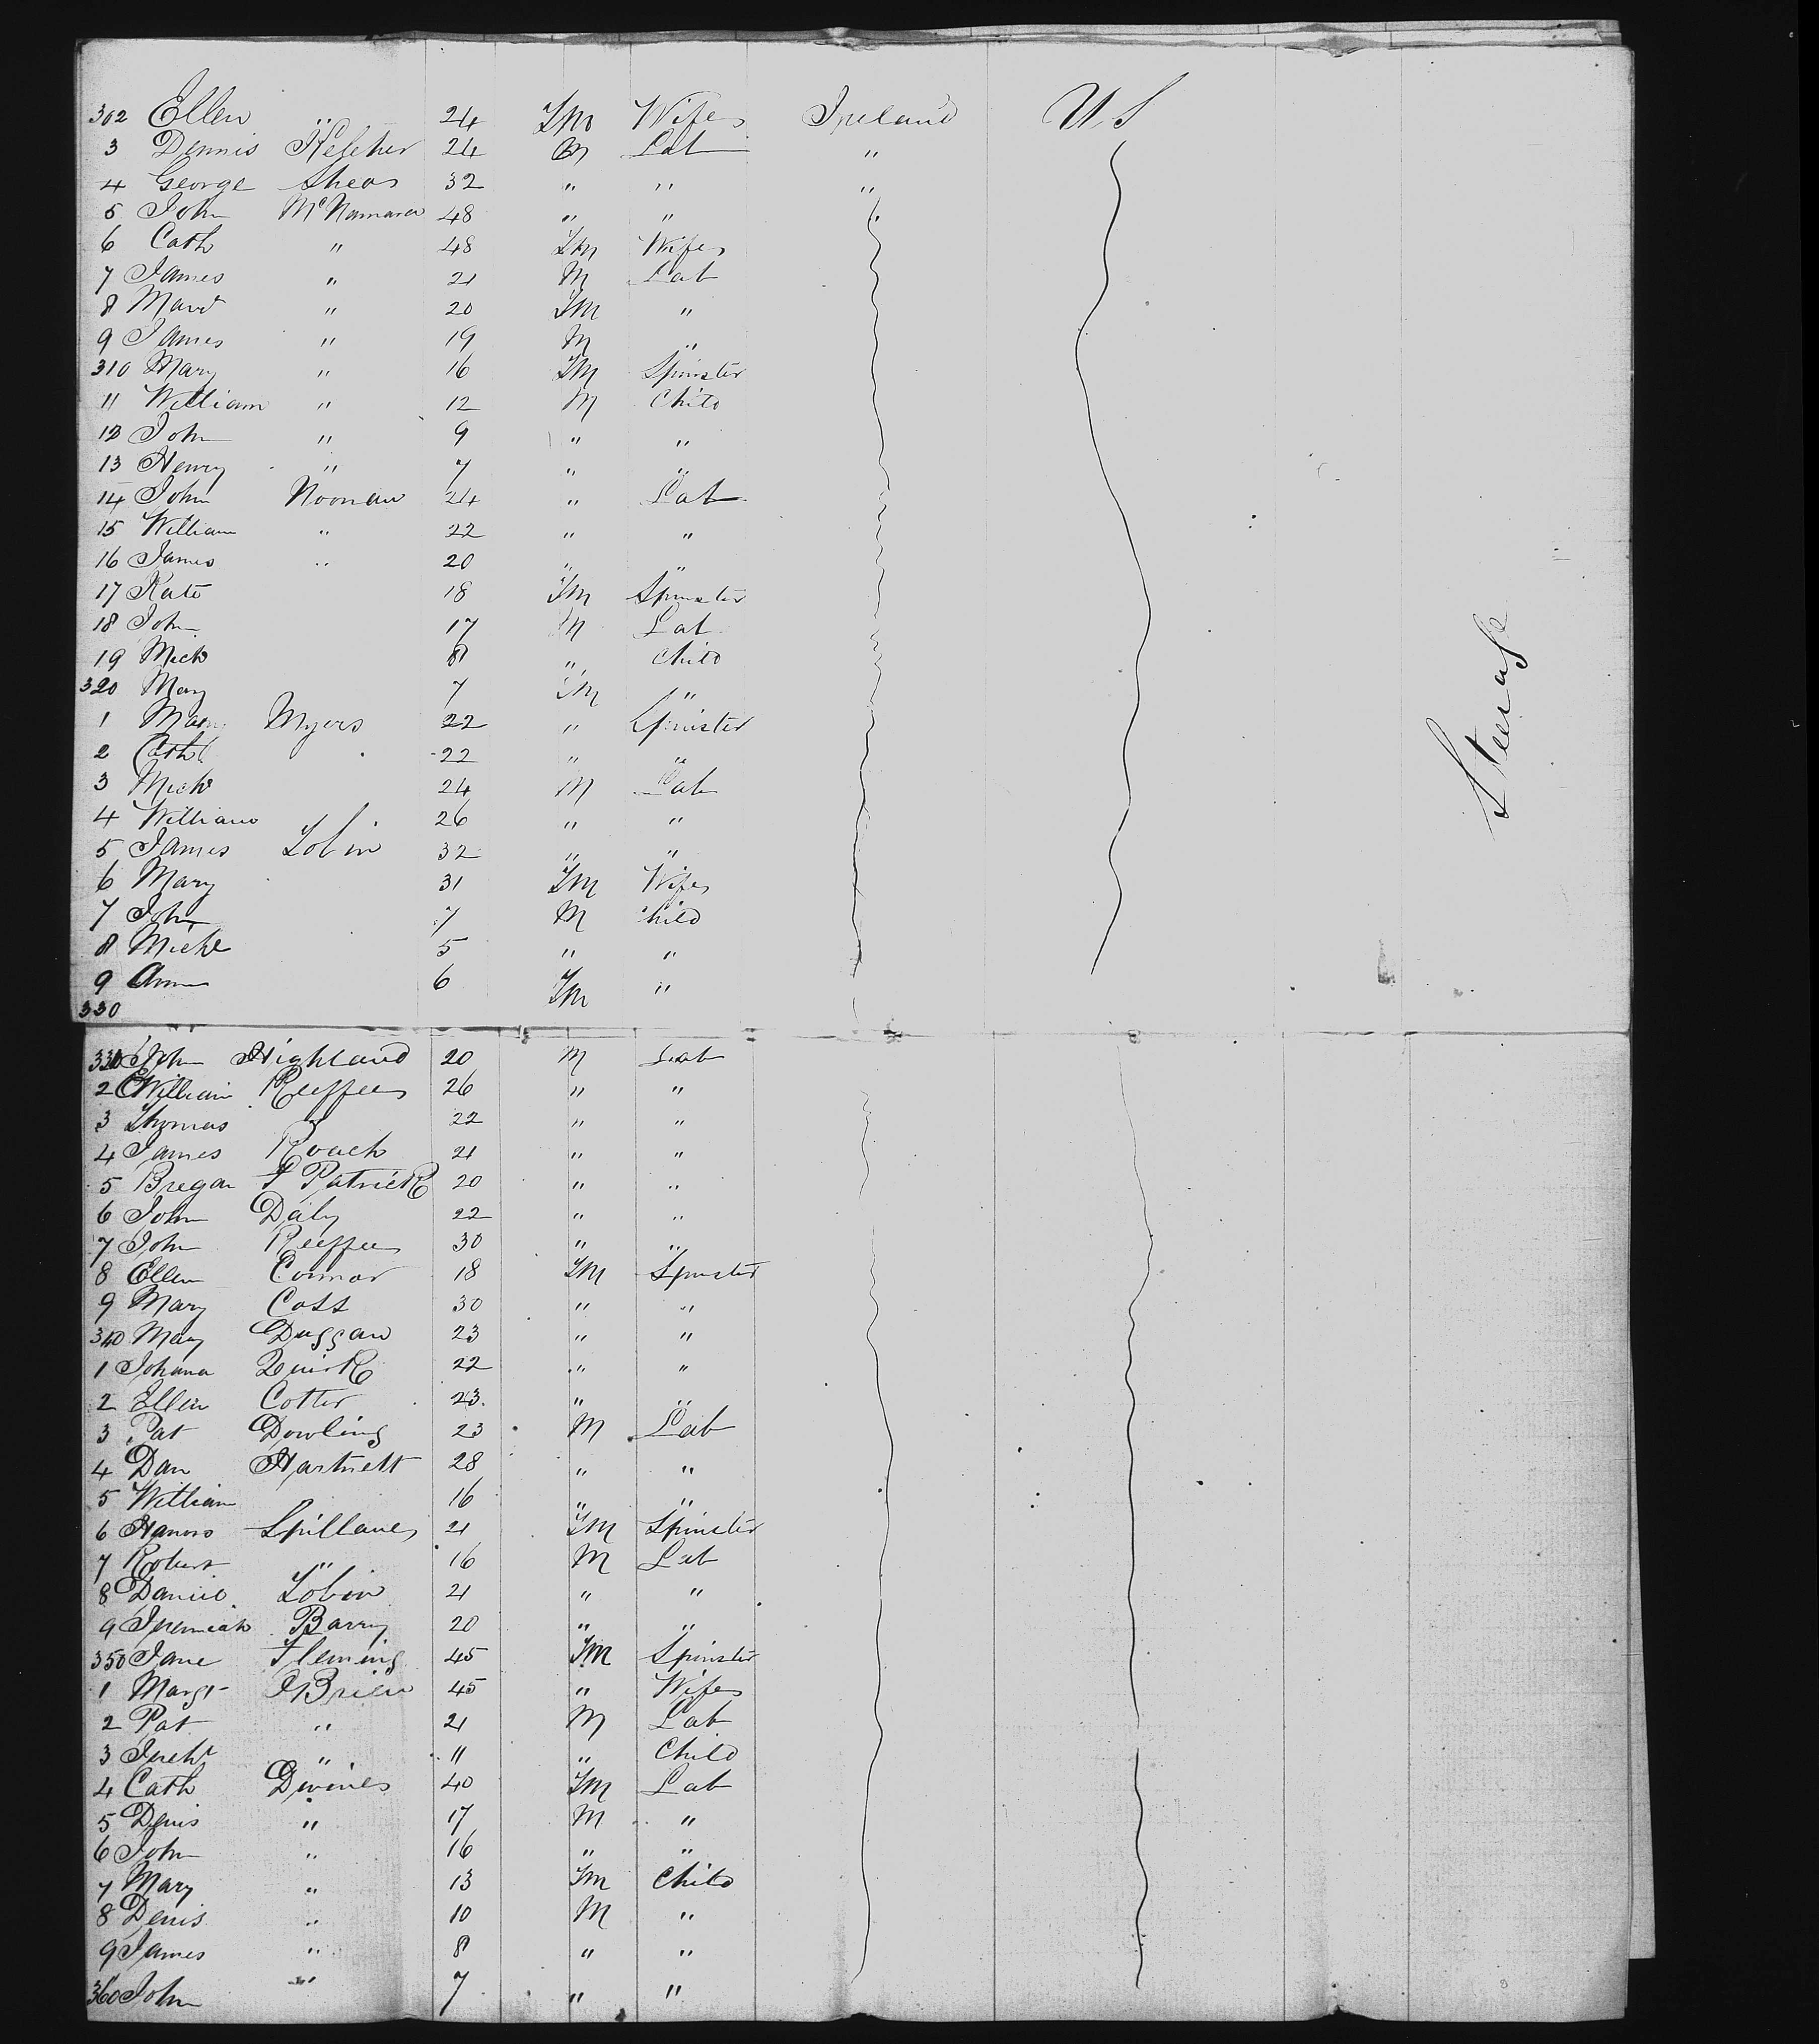 302 Ellen " 24 Fm Wife Ireland U S
3 Dennis Kelcher 24 M Lab "
4 George Shea 32 " " "
5 John McNamara 48 " " "
6 Cath " 48 Fm Wife
7 James " 21 M Lab
8 Marg " 20 Fm "
9 James " 19 M "
310 Mary " 16 Fm Spinster
11 William " 12 M Child
12 John " 9 " "
13 Henry " 7 " "
14 John Noonan 24 " Lab
15 William " 22 " "
16 James " 20 " "
17 Kate 18 Fm Spinster
18 John 17 M Lab
19 Mich 8 " Child
320 Mary 7 Fm "
1 Mary Myers 22 " Spinster
2 Cath 22 " "
3 Mich 24 M Lab
4 William 26 " "
5 James Tobin 32 " "
6 Mary 31 Fm Wife
7 John 7 M Child
8 Michl 5 " "
9 Ann 6 Fm "
330
Steerage
331 John Highland 20 M Lab
2 William Keeffee 26 " "
3 Thomas " 22 " "
4 James Roach 21 " "
5 Bregan F Patrick 20 " "
6 John Daly 22 " "
7 John Keeffee 30 " "
8 Ellen Connor 18 Fm Spinster
9 Mary Cass 30 " "
340 Mary Duggan 23 " "
1 Johana Quirk 22 " "
2 Ellen Cotter 23 " "
3 Pat Dowling 23 M Lab
4 Dan Hartnett 28 " "
5 William 16 " "
6 Hanora Spillane 21 Fm Spinster
7 Robert " 16 M Lab
8 Daniel Tobin 21 " "
9 Jeremiah Barry 20 " "
350 Jane Fleming 45 Fm Spinster
1 Margt OBrien 45 " Wife
2 Pat " 21 M Lab
3 Jereh " 11 " Child
4 Cath Divine 40 Fm Lab
5 Denis " 17 M "
6 John " 16 " "
7 Mary " 13 Fm Child
8 Denis " 10 M "
9 James " 8 " "
360 John " 7 " "